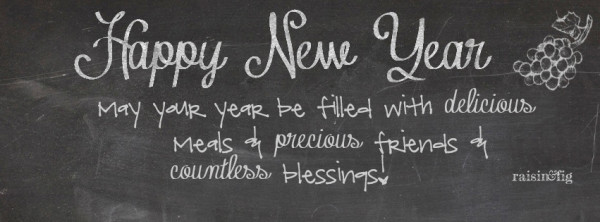 Happy New Year
May your year be filled with delicious
meals & precious friends &
countless blessings!
raisin&fig